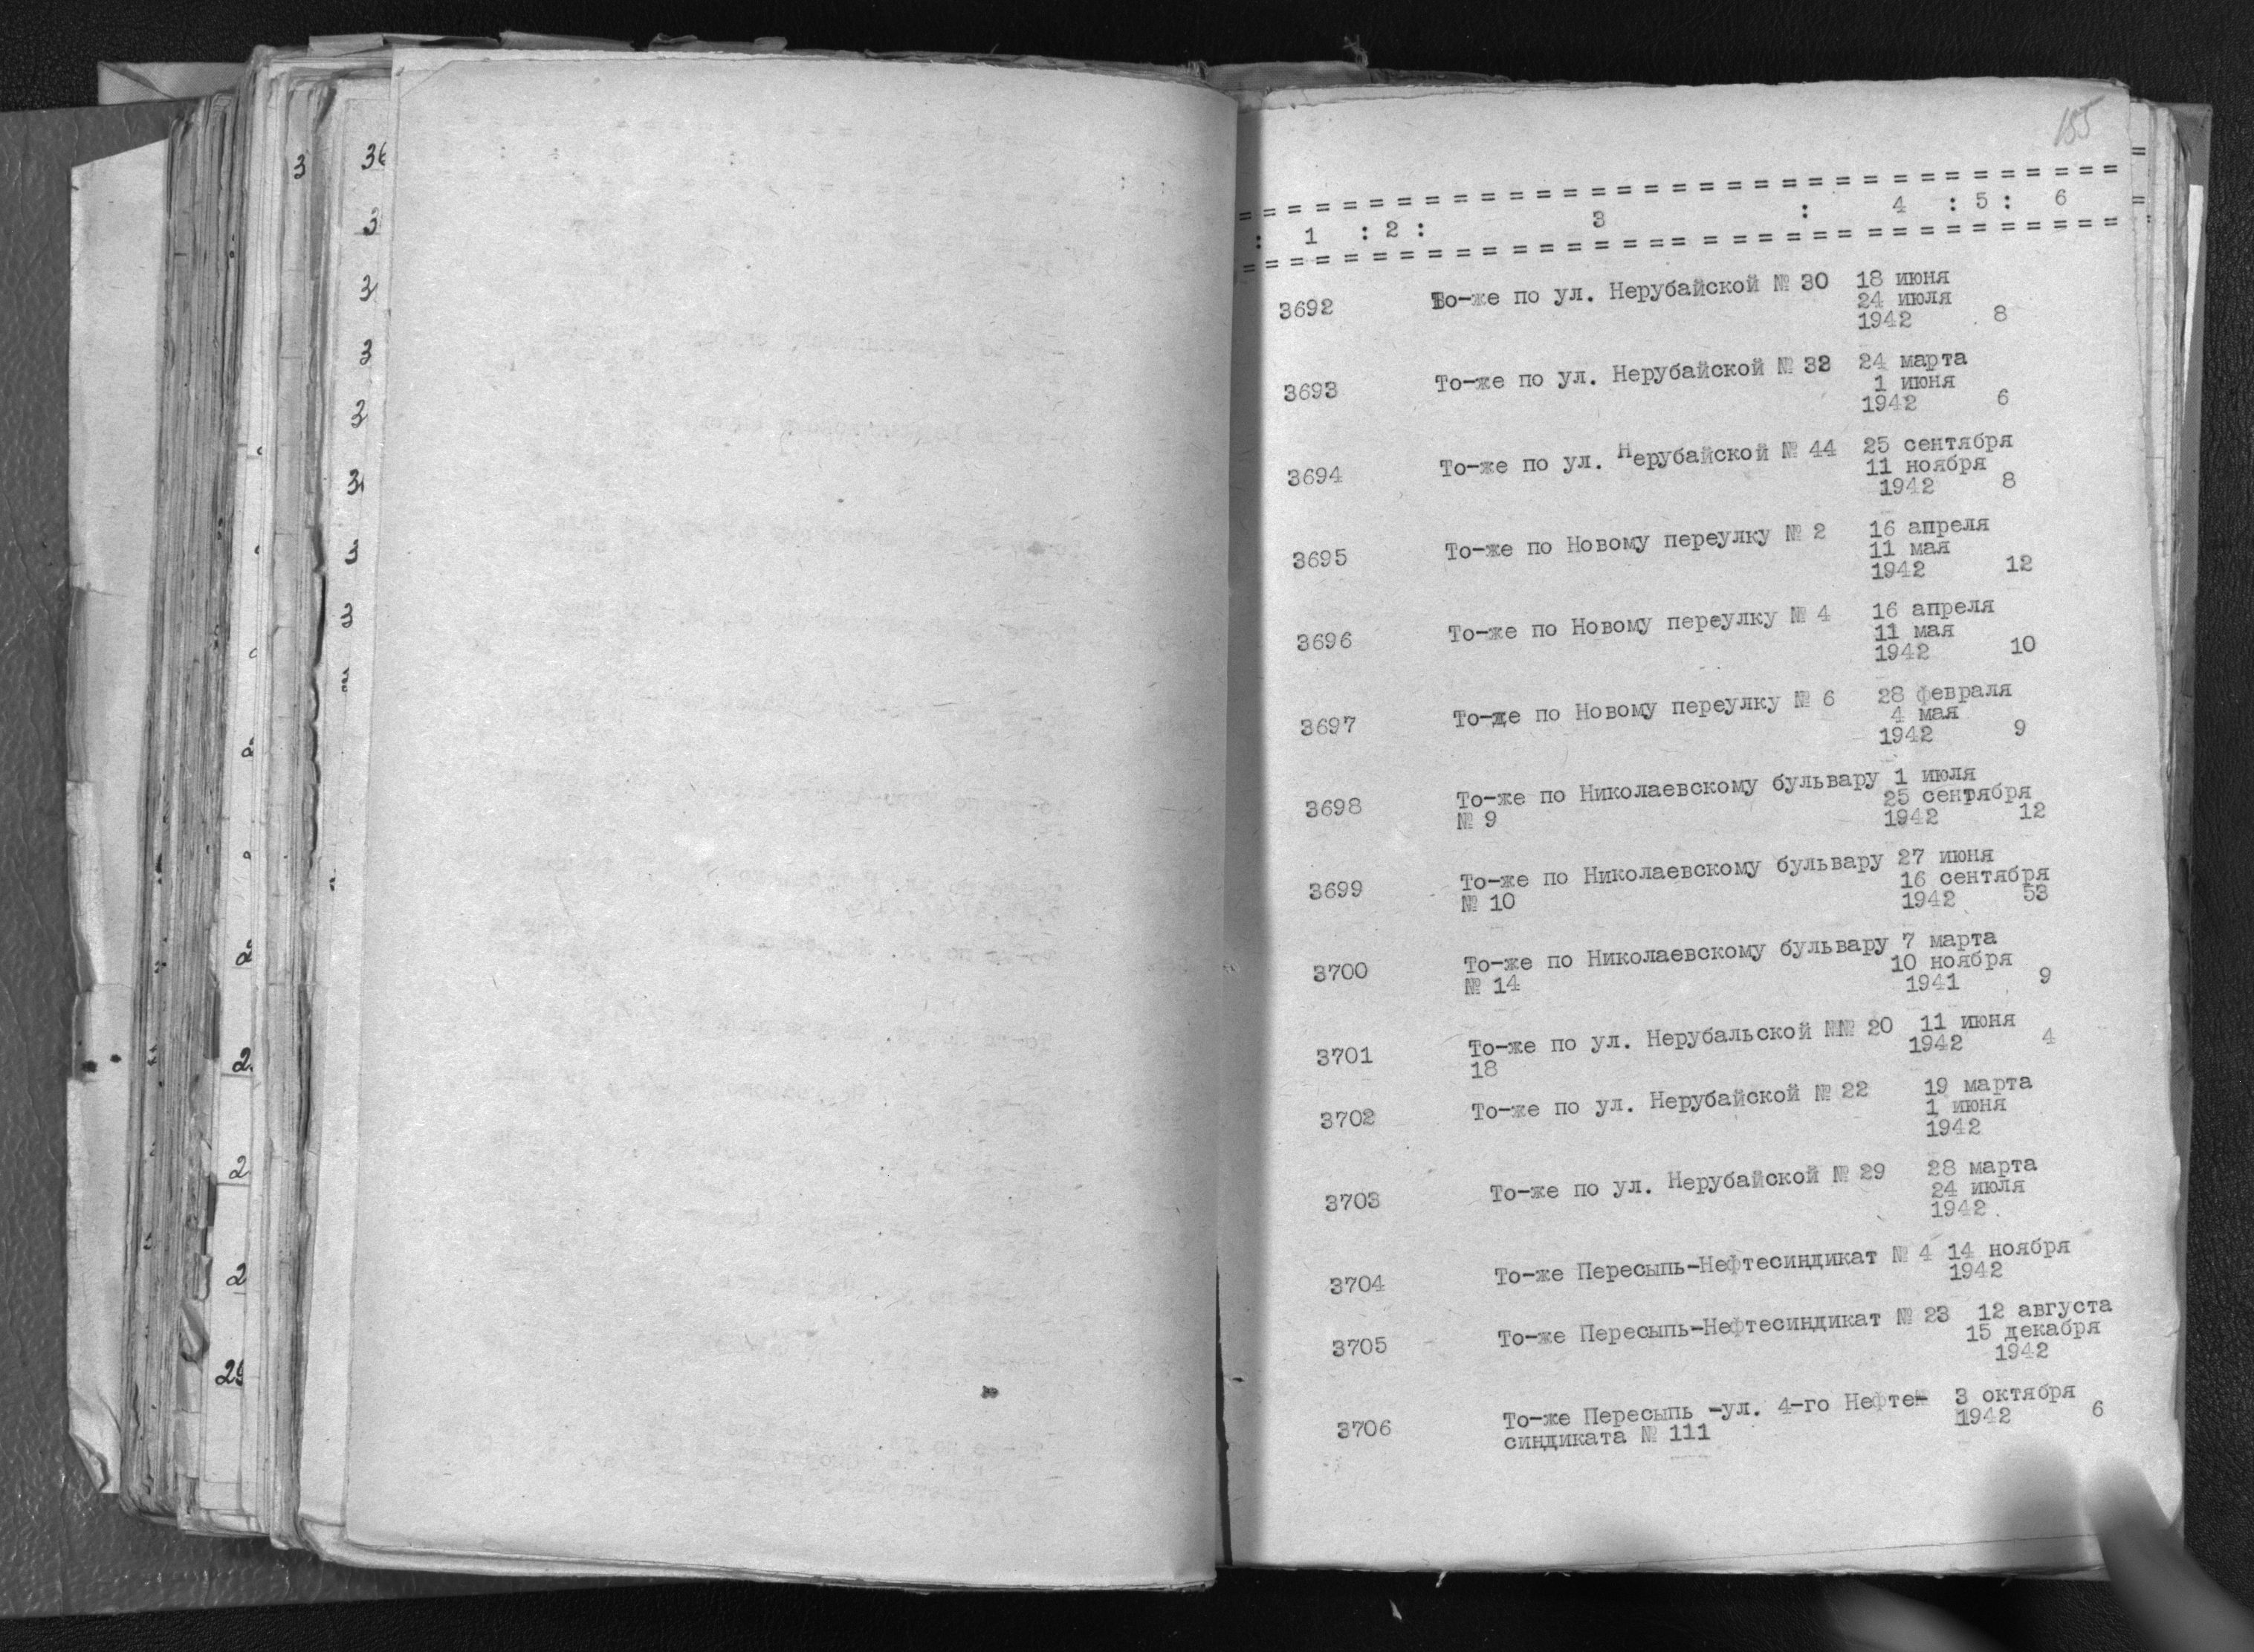 185
= = = = = = = = = = = = = = = = = = = = = = = = = = = = = = = =
: 1 : 2 : 3 : 4 : 5 : 6
= = = = = = = = = = = = = = = = = = = = = = = = = = = = = = = =
3692 То-же по ул. Нерубайской № 30 18 июня
24 июля
1942 8
3693 То-же по ул. Нерубайской № 32 24 марта
1 июня
1942 6
3694 То-же по ул. Нерубайской № 44 25 сентября
11 ноября
1942 8
3695 То-же по Новому переулку № 2 16 апреля
11 мая
1942 12
3696 То-же по Новому переулку № 4 16 апреля
11 мая
1942 10
3697 То-де по Новому переулку № 6 28 февраля
4 мая
1942 9
3698 То-же по Николаевскому бульвару 1 июля
25 сентября
№ 9 1942 12
3699 То-же по Николаевскому бульвару 27 июня
16 сентября
№ 10 1942 53
3700 То-же по Николаевскому бульвару 7 марта
10 ноября
№ 14 1941 9
3701 То-же по ул. Нерубальской №№ 20 11 июня
18 1942 4
3702 То-же по ул. Нерубайской № 22 19 марта
1 июня
1942
3703 То-же по ул. Нерубайской № 29 28 марта
24 июля
1942
3704 То-же Пересыпь-Нефтесиндикат № 4 14 ноября
1942
3705 То-же Пересыпь-Нефтесиндикат № 23 12 августа
15 декабря
1942
3706 То-же Пересыпь -ул. 4-го Нефте- 3 октября
синдиката № 111 1942 6